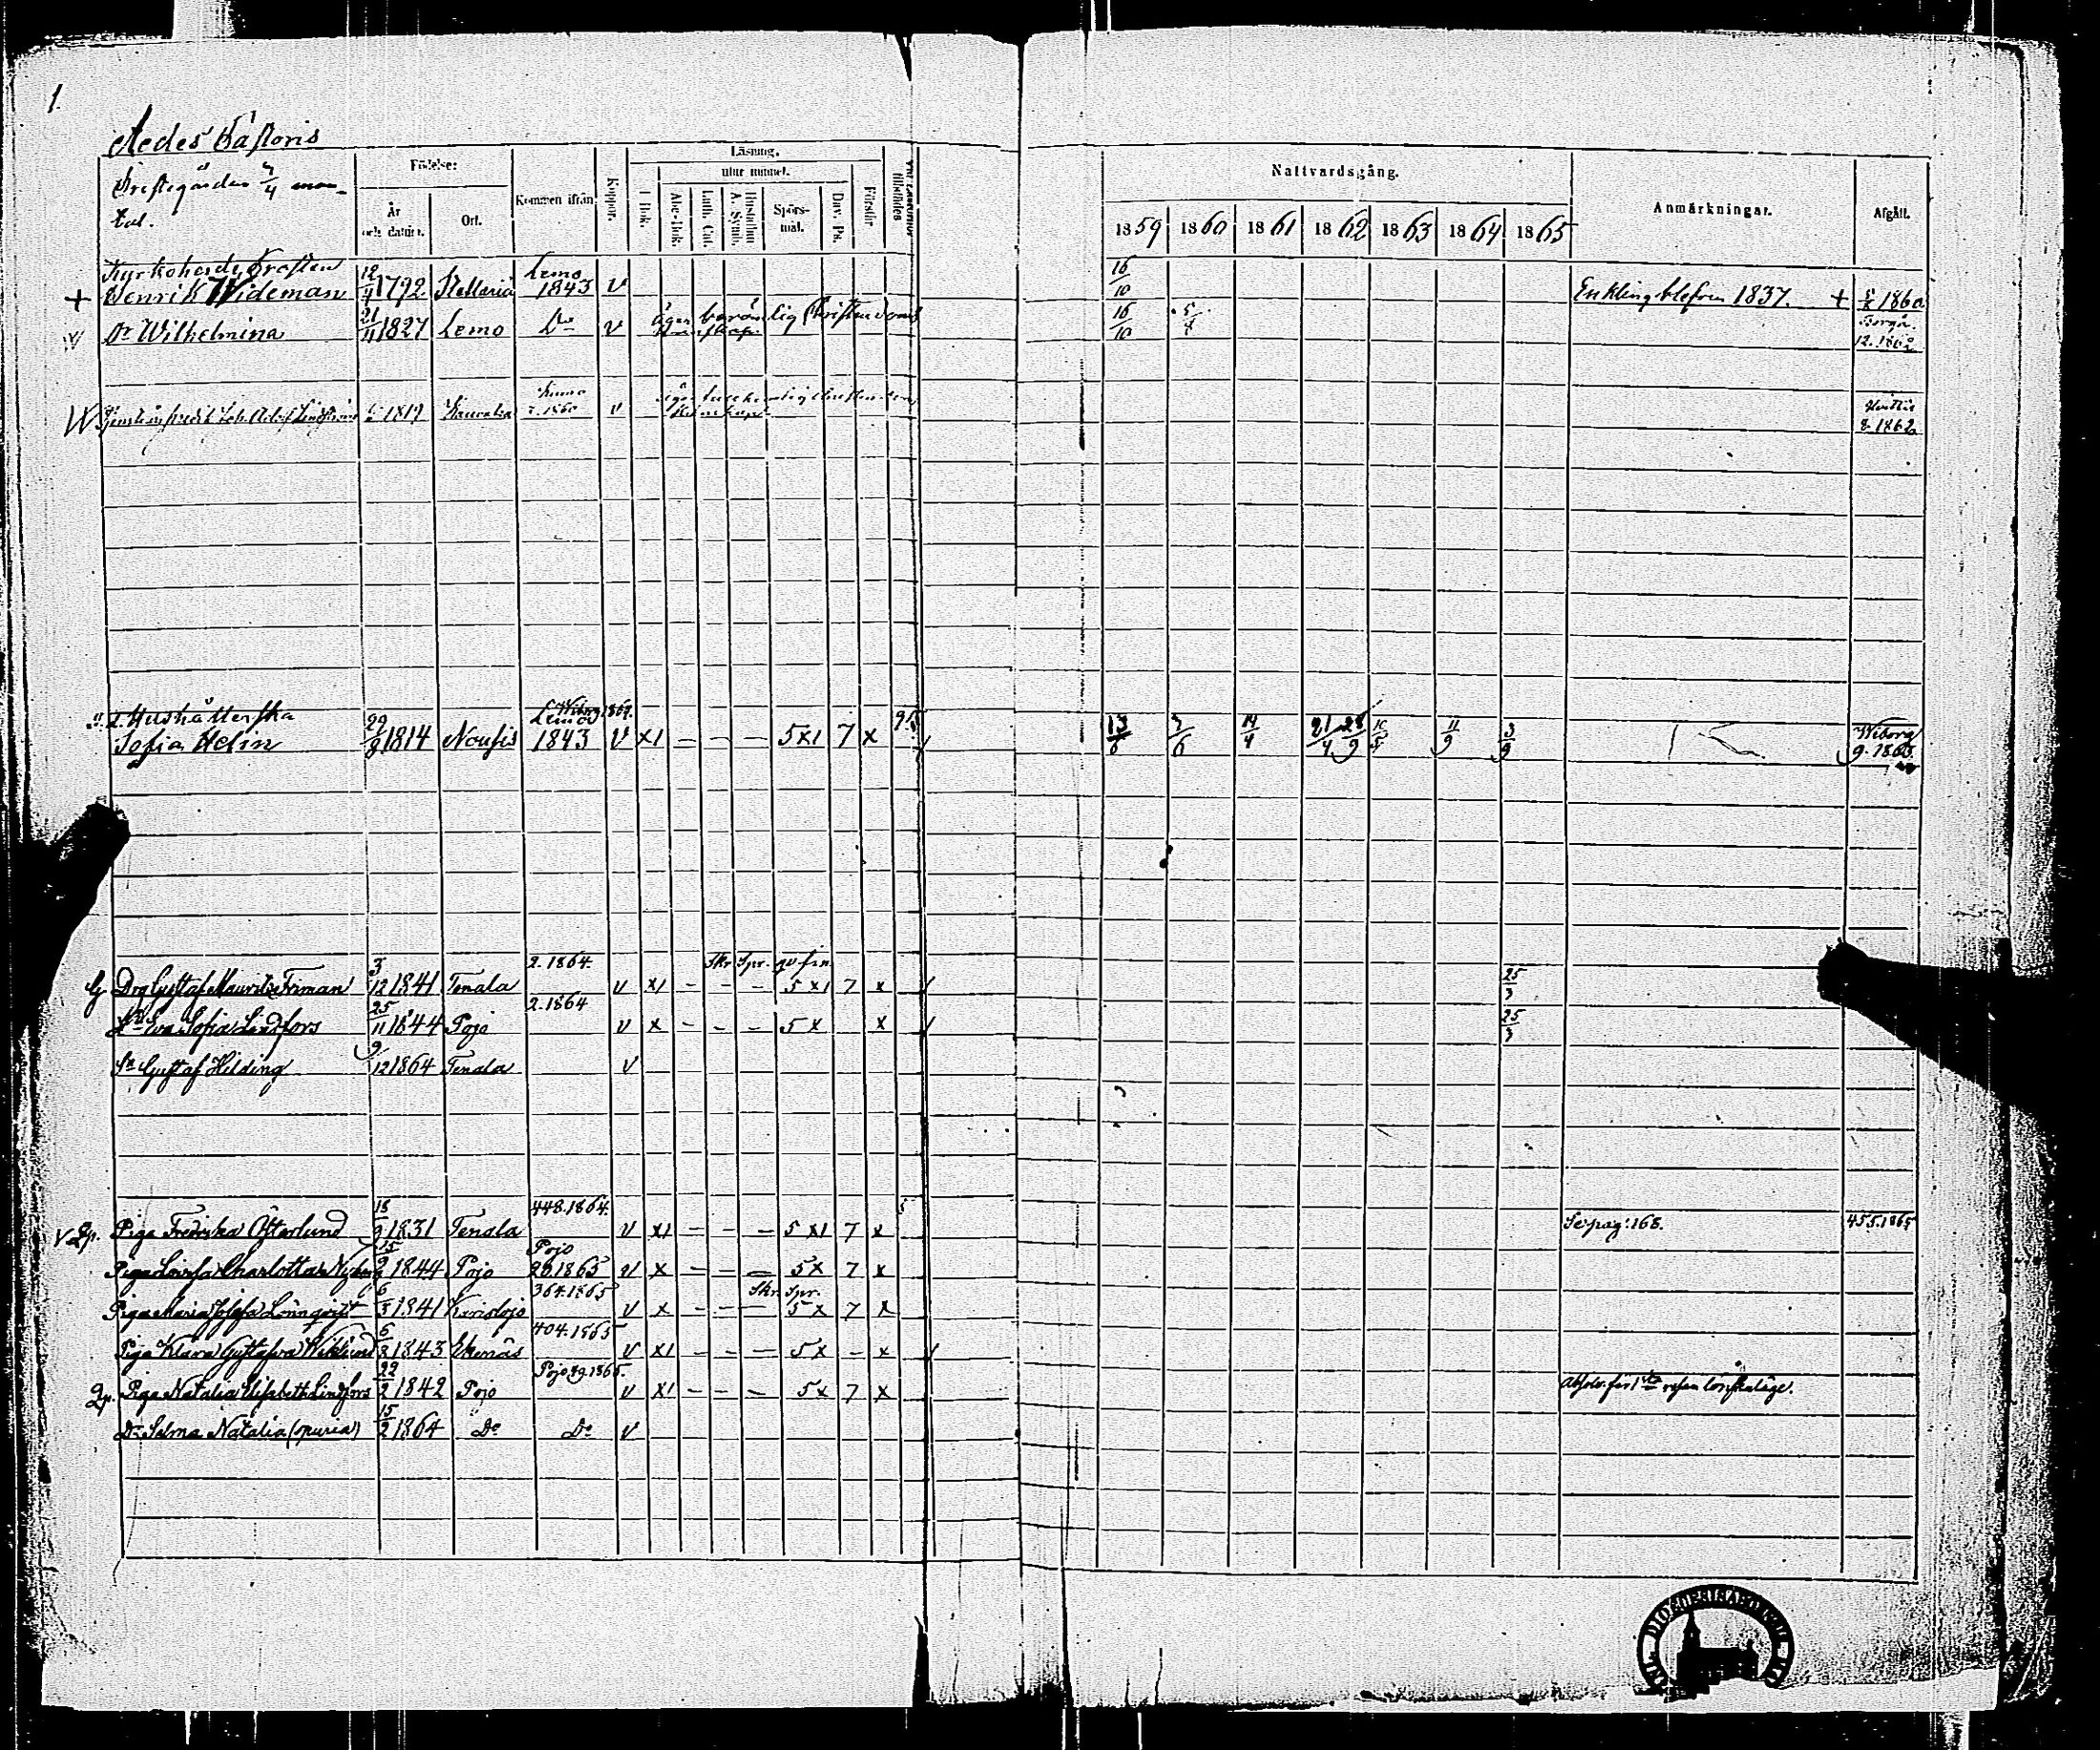 1.
Aedes Pastoris
Prestegården 3/4 man-
tal.
Födelse:
År och datum.
Ort.
Kommen ifrån
Koppor.
Läsning.
I Bok.
utur minnet.
Abc-Bok.
Luth. Cat.
Hustaflan A. Symb.
Spörs-mål.
Dav. Ps.
Förstår
tillstädes
Nattvardsgång.
1859 1860 1861 1862 1863 1864 1865
Anmärkningar.
Afgått.
Kyrkoherde, Prosten Lemo
+ Henrik Wideman 12/4 1792 1843 v 16/10 Enkling blefven 1837. + 1860
Dr Wilhelmina 21/11 1827 Lemo Do v äger Christendoms 16/10 Borgå
12. 1862
Lindström 1819 1860 v
8. 1862
Hushållerska Lemo Wiborg
Sofia Helin 29/8 1814 Nousis 1843 v x1 – – – 5x1 7 x 13/6 3/6 14/4 21/4 28/9 10/5 11/9 3/9 Wiborg
9. 1865.
2. 1864. Skr. Spr.
Drg Gustaf Mauritz Friman 3/12 1841 Tenala v x1 – – – 5x1 7 x 25/3
2. 1864
Hu Eva Sofia Lindfors 25/11 1844 Pojo v x – – – 5x x 25/3
Sn Gustaf Hilding 9/12 1864 Tenala v
448. 1864.
Piga Fredrika Österlund 18/9 1831 Tenala v x1 – – – 5x1 7 x Se pag: 168. 455. 1865
Pojo
Piga Lovisa Charlotta Nyberg 15/9 1844 Pojo 26. 1865 v x – – – 5x 7 x
364. 1865 Skr. Spr.
Piga Maria Josefa Lönnqvist 6/3 1841 Karislojo v x – – – 5x 7 x
404. 1865
Piga Klara Gustafva Wiklund 6/8 1843 Ekenäs v x1 – – – 5x – x
Pojo 29. 1865.
Piga Natalia Elisabeth Lindfors 22/2 1842 Pojo v x1 – – – 5x 7 x Absolv. för 1sta resan lönskaläge.
Dr Selma Natalia (spuria) 15/2 1864 Do Do v